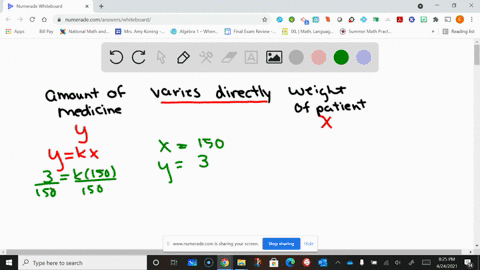 Numerade Whiteboard
numerade.com/answers/whiteboard/
Apps
Bill Pay
National Math and...
Mrs. Amy Koning -...
Algebra 1 - Whenev...
Final Exam Review -...
IXL | Math, Language...
Summer Math Practi...
Reading list
A
amount of medicine
varies directly
weight of patient
y
x
y = kx
x = 150
y = 3
3 = k(150)
150 150
www.numerade.com is sharing your screen.
Stop sharing
Hide
Type here to search
8:25 PM
4/24/2021